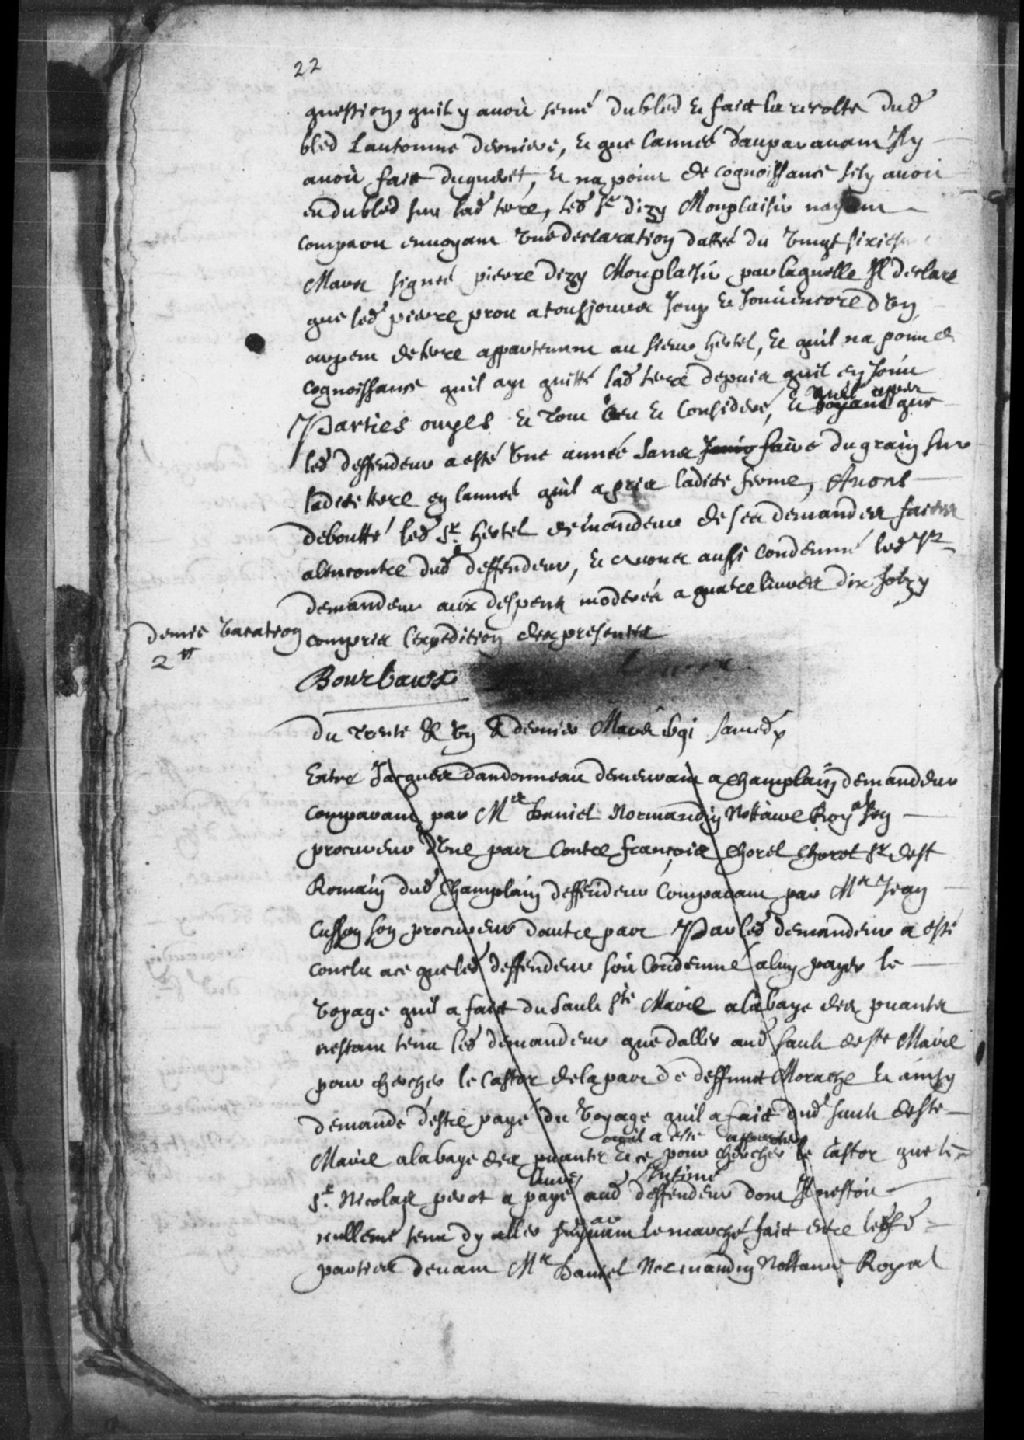 22
question, quil y avoit semé du bled et fait la recolte dud
bled Lautomne derniere, et que lannée dauparavant Il y
avoit fait du gueret, et na point de cognoissance sily avoit
eu du bled sur lad terre, led Sr dizy Monplaisir nayant
comparu envoyant une declaration dattée du vingt sixiesme
Mars signée pierre dizy Monplaisir par laquelle Il declare
que led pierre prou a tousjours Jouy et Jouit encore d'un
arpent de terre appartenant au sieur hertel, et quil na point de
cognoissance quil ayt quitté lad terre depuis quil en Jouit
Parties ouyes et tout veu et consideré, et voyant que
led deffendeur a esté une année sans faire du grain sur
ladite terre en lannée quil a pris ladite ferme, Avons
deboutté led Sr hertel demandeur de ses demandes faites
alencontre dud deffendeur, et avons aussi condemné led Sr
demandeur aux despens moderés a quatre livres dix solz y
compris lexpedition des presentes
demie vacation
2 tt
Bourbaux
du trente & un & dernier Mars bgi samedy
Entre Jacques dandonneau demeurant a Champlain demandeur
comparant par Mre daniel Normandin Nottaire Royal son
procureur d'une part Contre françois Chorel Chorel Sr de St
Romain dud Champlain deffendeur comparant par Mre Jean
Cusson son procureur dautre part Par led demandeur a esté
conclu a ce que led deffendeur soit condemné a luy payer le
voyage quil a fait du Sault Ste Marie a la baye des puants
nestant tenu led demandeur que daller aud Sault de Ste Marie
pour chercher le Castor de la part de deffunt Morache et ainsy
demande d'estre payé du voyage quil a fait dud Sault de Ste
ouil a esté
Marie a la baye des puants et ce pour chercher le Castor que le
Sr Nicolas perot a payé aud deffendeur dont Il nestoit
nullemt tenu dy aller suivant le marché fait entre lesd
parties devant Mre daniel Normandin Nottaire Royal